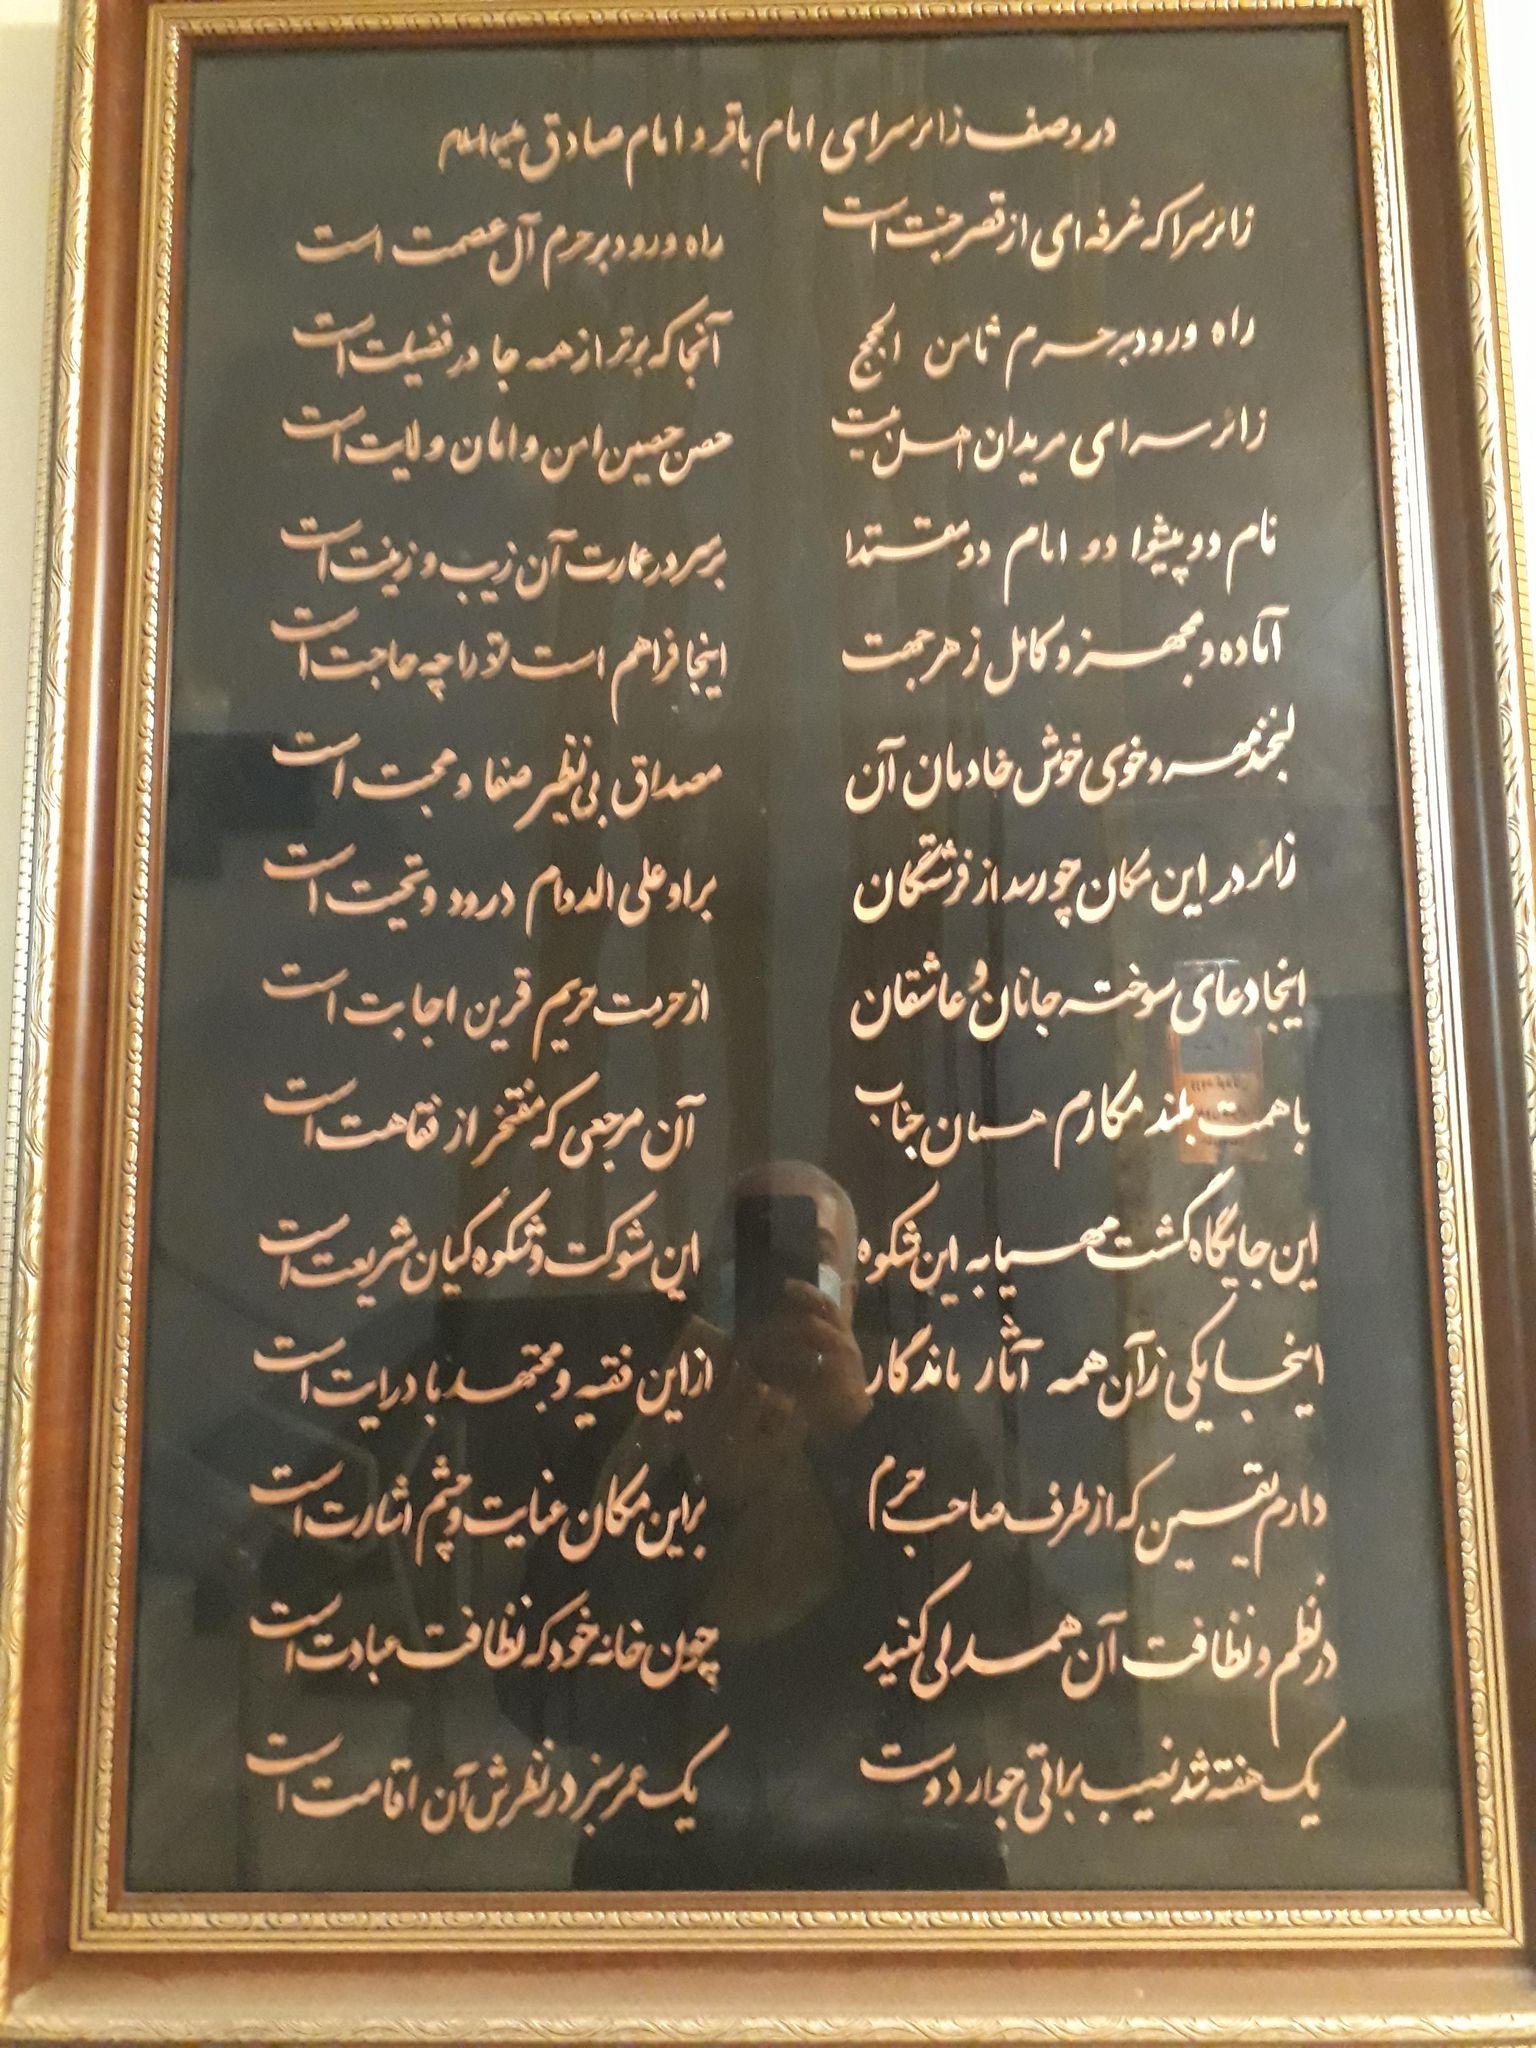 در وصف زائرسرای امام باقر و امام صادق علیهما السلام
زائرسرا که غرفه ای از قصر جنت است راه ورود بر حرم آل عصمت است
راه ورود بر حرم ثامن الحجج آنجا که برتر از همه جا در فضیلت است
زائر سرای مریدان اهل بیت حصن حصین امن و امان ولایت است
نام دو پیشوا دو امام دو مقتدا بر سر در عمارت آن زیب و زینت است
آماده و مجهز و کامل ز هر جهت اینجا فراهم است تو را چه حاجت است
لبخند مهر و خوی خوش خادمان آن مصداق بی نظیر صفا و محبت است
زائر در این مکان چو رسد از فرشتگان بر او علی الدوام درود و تحیت است
اینجا دعای سوخته جانان و عاشقان از حرمت حریم قرین اجابت است
با همت بلند مکارم همان جناب آن مرجعی که مفتخر از فقاهت است
این جایگاه گشت مهیا به این شکوه این شوکت و شکوه کیان شریعت است
اینجا یکی ز آن همه آثار ماندگار از این فقیه و مجتهد با درایت است
دارم یقین که از طرف صاحب حرم بر این مکان عنایت و چشم اشارت است
در نظم و نظافت آن همدلی کنید چون خانه خود که نظافت عبادت است
یک هفته شد نصیب براتی جوار دوست یک عمر سبز در نظرش آن اقامت است